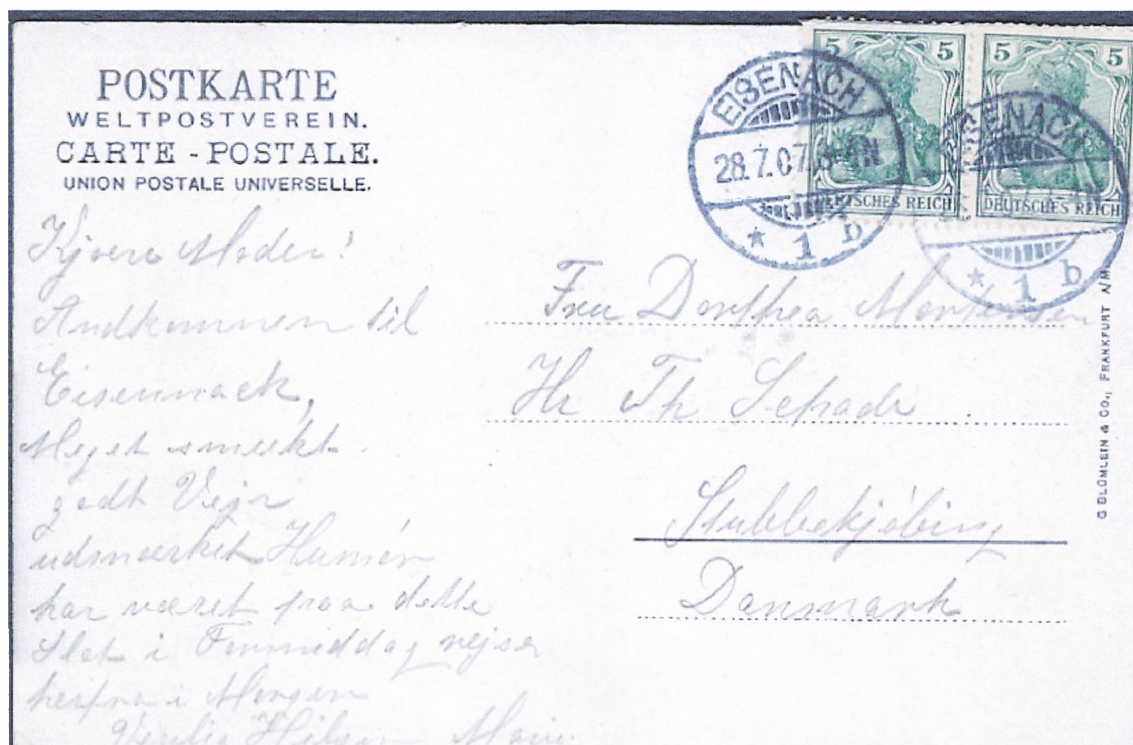 POSTKARTE
WELTPOSTVEREIN.
CARTE - POSTALE.
UNION POSTALE UNIVERSELLE.
5 5 5 5
DEUTSCHES REICH DEUTSCHES REICH
EISENACH
28.7.07.
* 1 b
EISENACH
* 1 b
Kjære Moder!
Andkommen til
Eisennack,
Meget smukt.
godt Vejr
udmærket Humör
har været paa dette
Slot i Formiddag rejser
herfra i Morgen
Venlig Hilsen Marie
Fru Dorthea Mortensen
Hr Th
Stubbekjöbing
Danmark
G BLÜMLEIN & CO., FRANKFURT A/M.